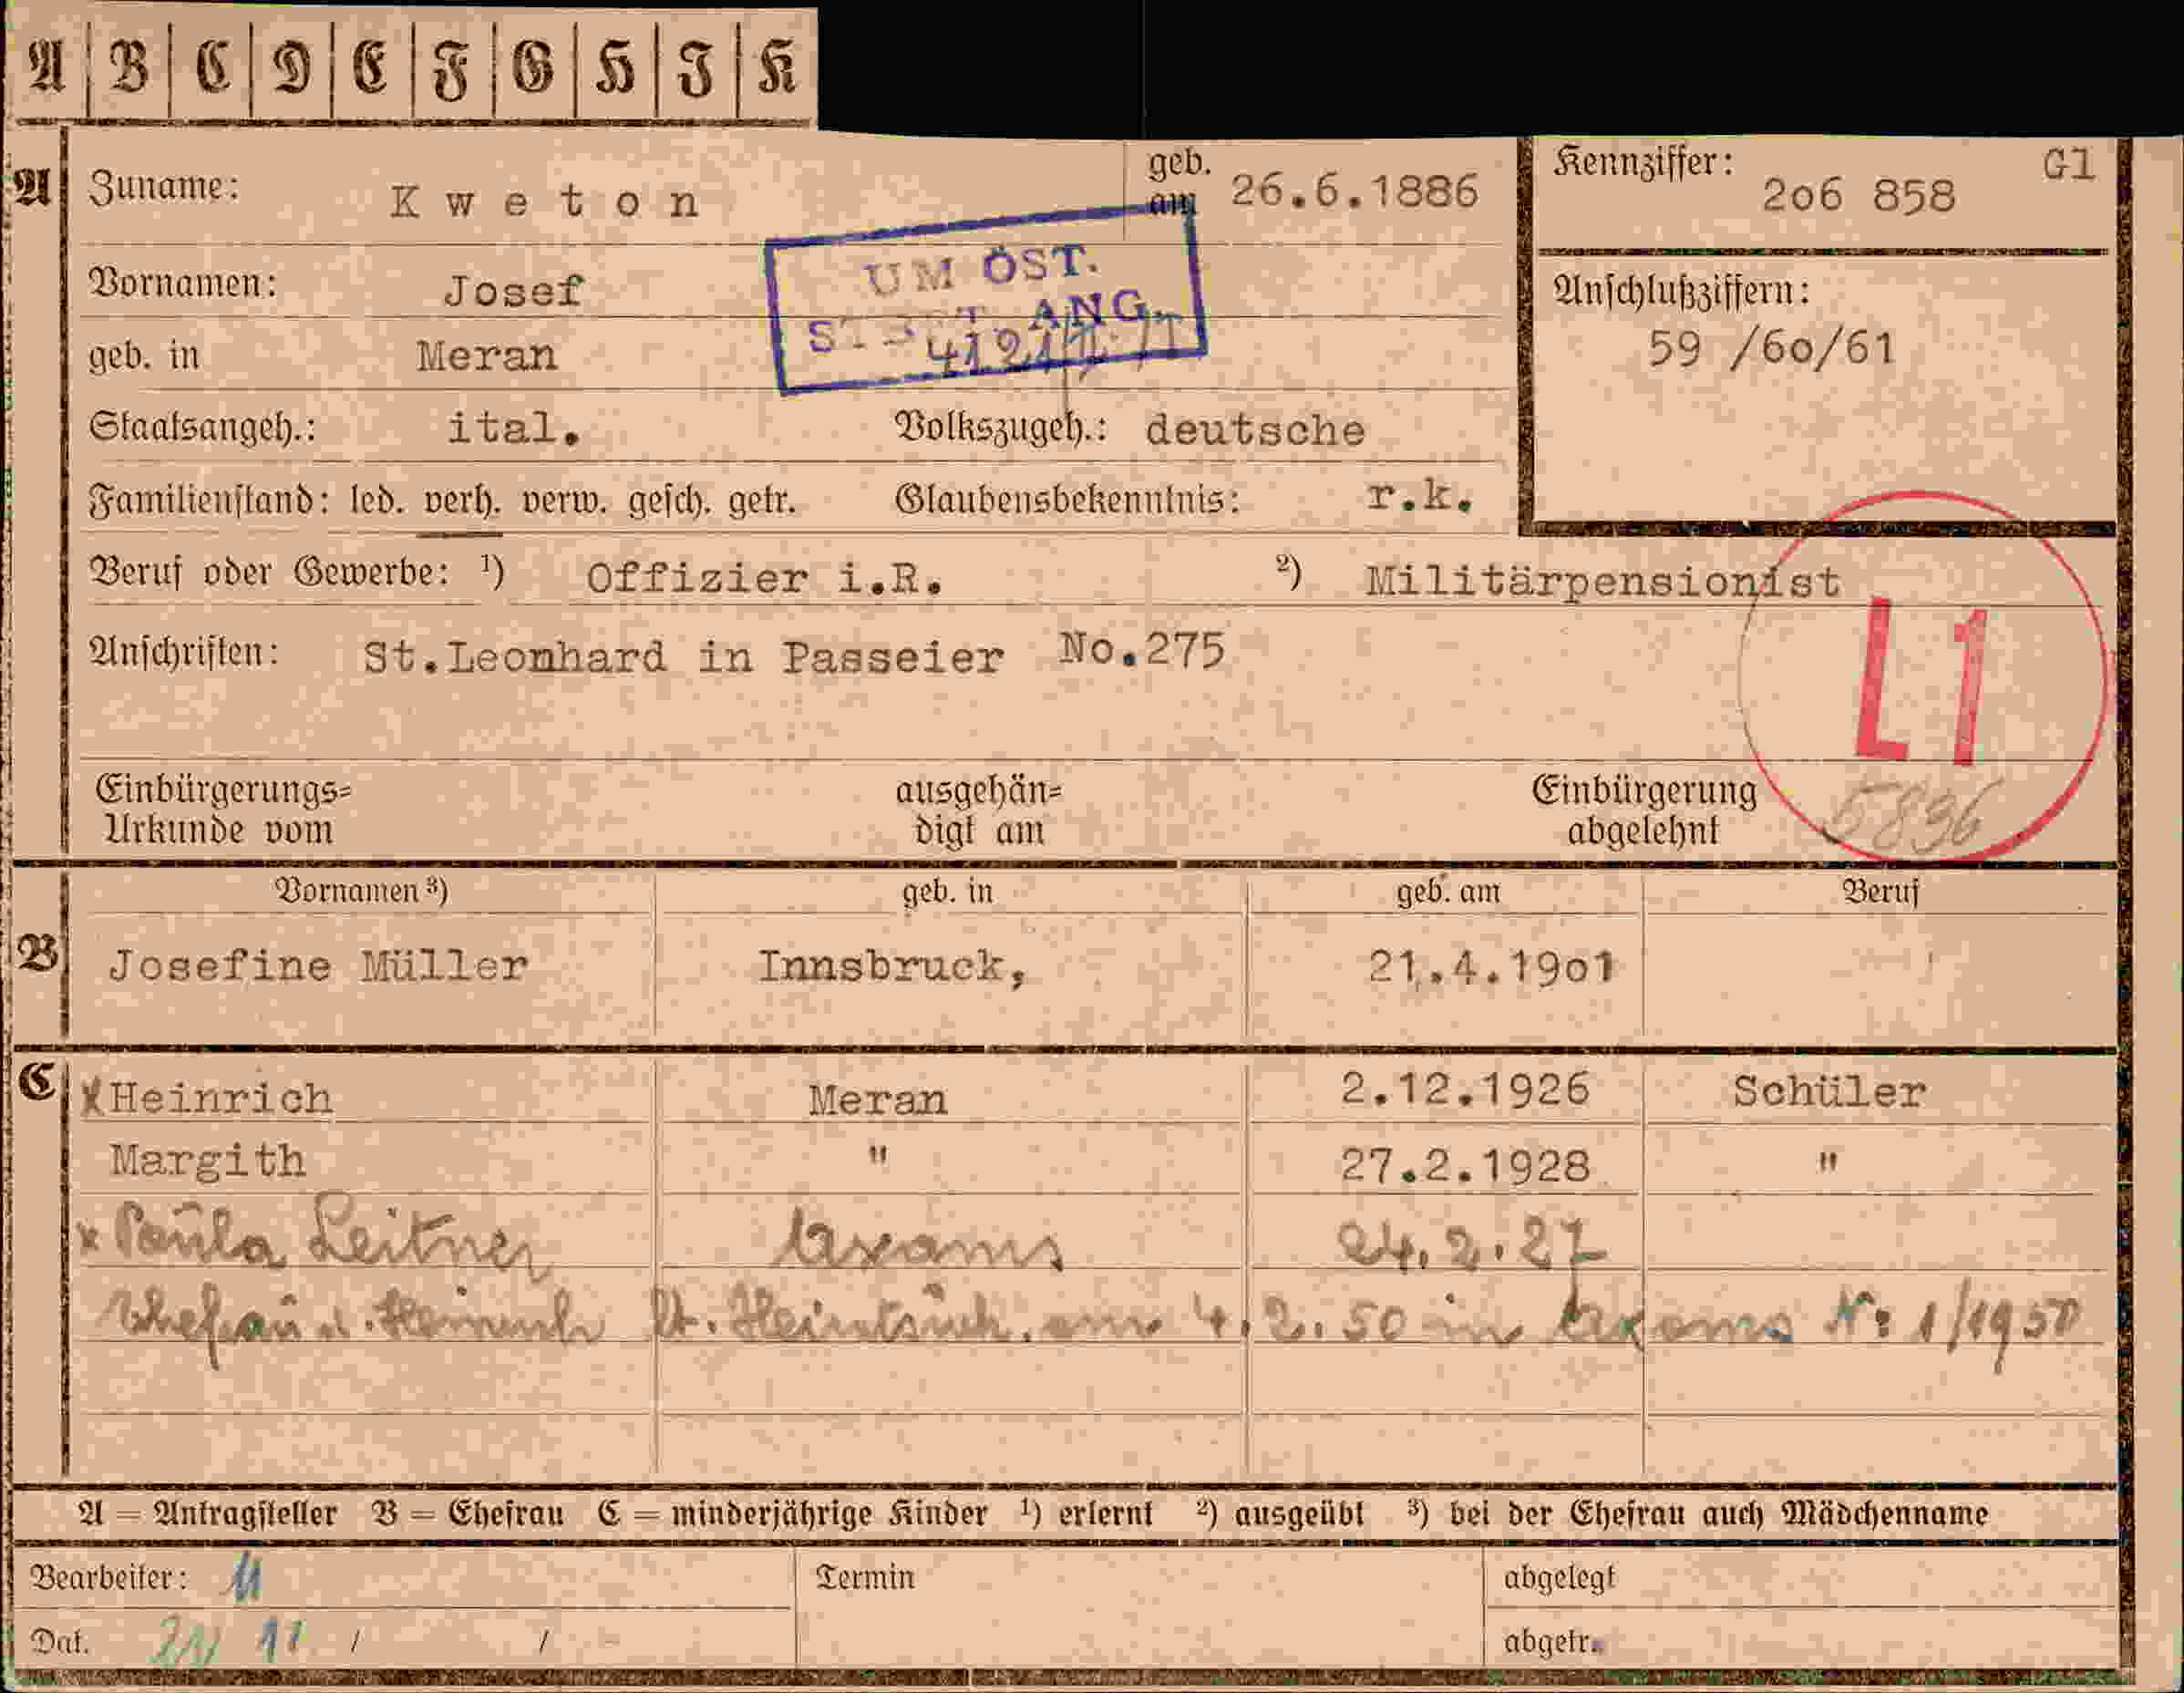 A B C D E F G H J K
A Zuname: Kweton geb. am 26.6.1886 Kennziffer: 2o6 858 Gl
UM ÖST.
Vornamen: Josef Anschlußziffern:
ANG.
geb. in Meran 59 /6o/61
Staatsangeh.: ital. Volkszugeh.: deutsche
Familienstand: led. verh. verw. gesch. getr. Glaubensbekenntnis: r.k.
Beruf oder Gewerbe: ¹) Offizier i.R. ²) Militärpensionist
Anschriften: St.Leonhard in Passeier No.275
L1
Einbürgerungs= ausgehän= Einbürgerung
Urkunde vom digt am abgelehnt 5896
Vornamen ³) geb. in geb. am Beruf
B Josefine Müller Innsbruck, 21.4.19o1
C x Heinrich Meran 2.12.1926 Schüler
Margith " 27.2.1928 "
x Paula Leitner Axams 24.2.27
Ehefrau d. Heinrich lt. Heiratsurk. am 4.2.50 in Axams Nr 1/1950
A = Antragsteller B = Ehefrau C = minderjährige Kinder ¹) erlernt ²) ausgeübt ³) bei der Ehefrau auch Mädchenname
Bearbeiter: Termin abgelegt
Dat. / / abgetr.